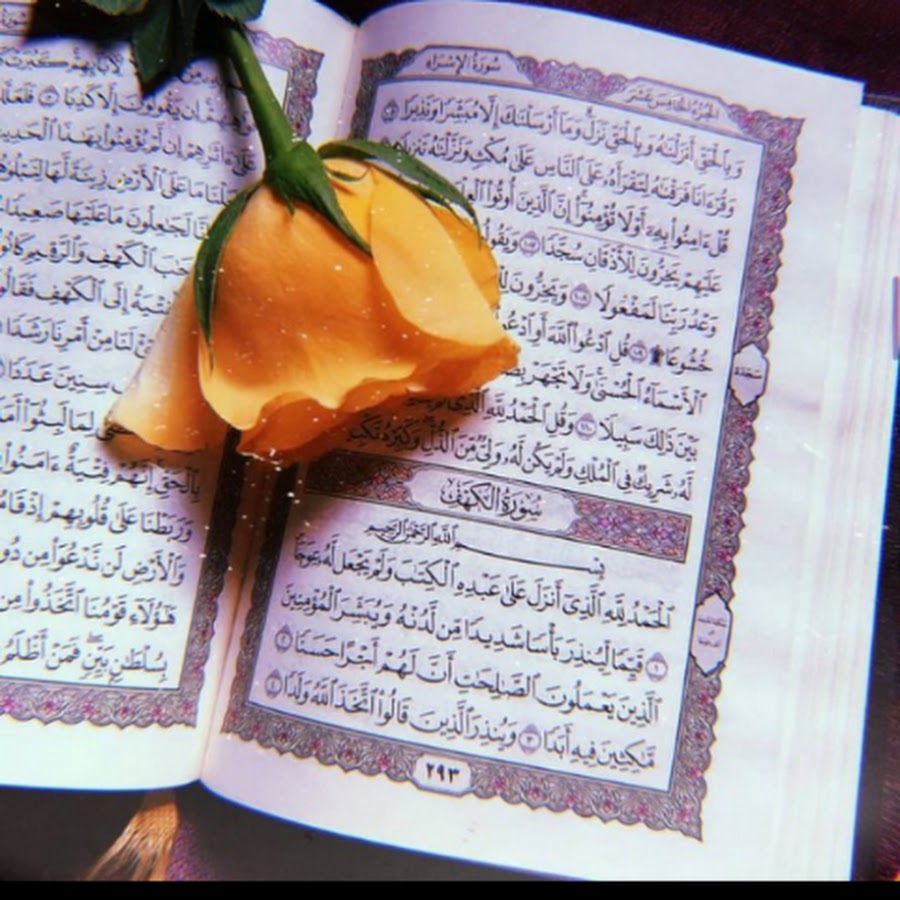 سُورَةُ الإِسْرَاءِ
الجُزْءُ الخَامِسَ عَشَرَ
وَبِٱلْحَقِّ أَنزَلْنَٰهُ وَبِٱلْحَقِّ نَزَلَ وَمَآ أَرْسَلْنَٰكَ إِلَّا مُبَشِّرًا وَنَذِيرًا ١٠٥
وَقُرْءَانًا فَرَقْنَٰهُ لِتَقْرَأَهُۥ عَلَى ٱلنَّاسِ عَلَىٰ مُكْثٍ وَنَزَّلْنَٰهُ تَنزِيلًا
قُلْ ءَامِنُوا۟ بِهِۦٓ أَوْ لَا تُؤْمِنُوٓا۟ إِنَّ ٱلَّذِينَ أُوتُوا۟
عَلَيْهِمْ يَخِرُّونَ لِلْأَذْقَانِ سُجَّدًا ١٠٧ وَيَقُولُ
وَعْدُ رَبِّنَا لَمَفْعُولًا ١٠٨ وَيَخِرُّونَ
خُشُوعًا ۩ ١٠٩ قُلِ ٱدْعُوا۟ ٱللَّهَ أَوِ ٱدْعُوا۟
ٱلْأَسْمَآءُ ٱلْحُسْنَىٰ وَلَا تَجْهَرْ
بَيْنَ ذَٰلِكَ سَبِيلًا ١١٠ وَقُلِ ٱلْحَمْدُ لِلَّهِ ٱلَّذِى
لَّهُۥ شَرِيكٌ فِى ٱلْمُلْكِ وَلَمْ يَكُن لَّهُۥ وَلِىٌّ مِّنَ ٱلذُّلِّ وَكَبِّرْهُ
سَجْدَة
سُورَةُ الكَهْفِ
بِسْمِ ٱللَّهِ ٱلرَّحْمَٰنِ ٱلرَّحِيمِ
ٱلْحَمْدُ لِلَّهِ ٱلَّذِىٓ أَنزَلَ عَلَىٰ عَبْدِهِ ٱلْكِتَٰبَ وَلَمْ يَجْعَل لَّهُۥ عِوَجَا
١ قَيِّمًا لِّيُنذِرَ بَأْسًا شَدِيدًا مِّن لَّدُنْهُ وَيُبَشِّرَ ٱلْمُؤْمِنِينَ
ٱلَّذِينَ يَعْمَلُونَ ٱلصَّٰلِحَٰتِ أَنَّ لَهُمْ أَجْرًا حَسَنًا ٢
مَّٰكِثِينَ فِيهِ أَبَدًا ٣ وَيُنذِرَ ٱلَّذِينَ قَالُوا۟ ٱتَّخَذَ ٱللَّهُ وَلَدًا ٤
٢٩٣
إِن يَقُولُونَ إِلَّا كَذِبًا ٥
إِن لَّمْ يُؤْمِنُوا۟ بِهَٰذَا ٱلْحَدِيثِ
جَعَلْنَا مَا عَلَى ٱلْأَرْضِ زِينَةً لَّهَا لِنَبْلُوَهُمْ
لَجَٰعِلُونَ مَا عَلَيْهَا صَعِيدًا
ٱلْكَهْفِ وَٱلرَّقِيمِ كَانُوا۟
ٱلْفِتْيَةُ إِلَى ٱلْكَهْفِ فَقَالُوا۟
لَنَا مِنْ أَمْرِنَا رَشَدًا
سِنِينَ عَدَدًا
لِمَا لَبِثُوٓا۟ أَمَدًا
بِٱلْحَقِّ إِنَّهُمْ فِتْيَةٌ ءَامَنُوا۟
وَرَبَطْنَا عَلَىٰ قُلُوبِهِمْ إِذْ قَامُوا۟
وَٱلْأَرْضِ لَن نَّدْعُوَا۟ مِن دُونِهِ
هَٰٓؤُلَآءِ قَوْمُنَا ٱتَّخَذُوا۟ مِن
بِسُلْطَٰنٍۭ بَيِّنٍ فَمَنْ أَظْلَمُ